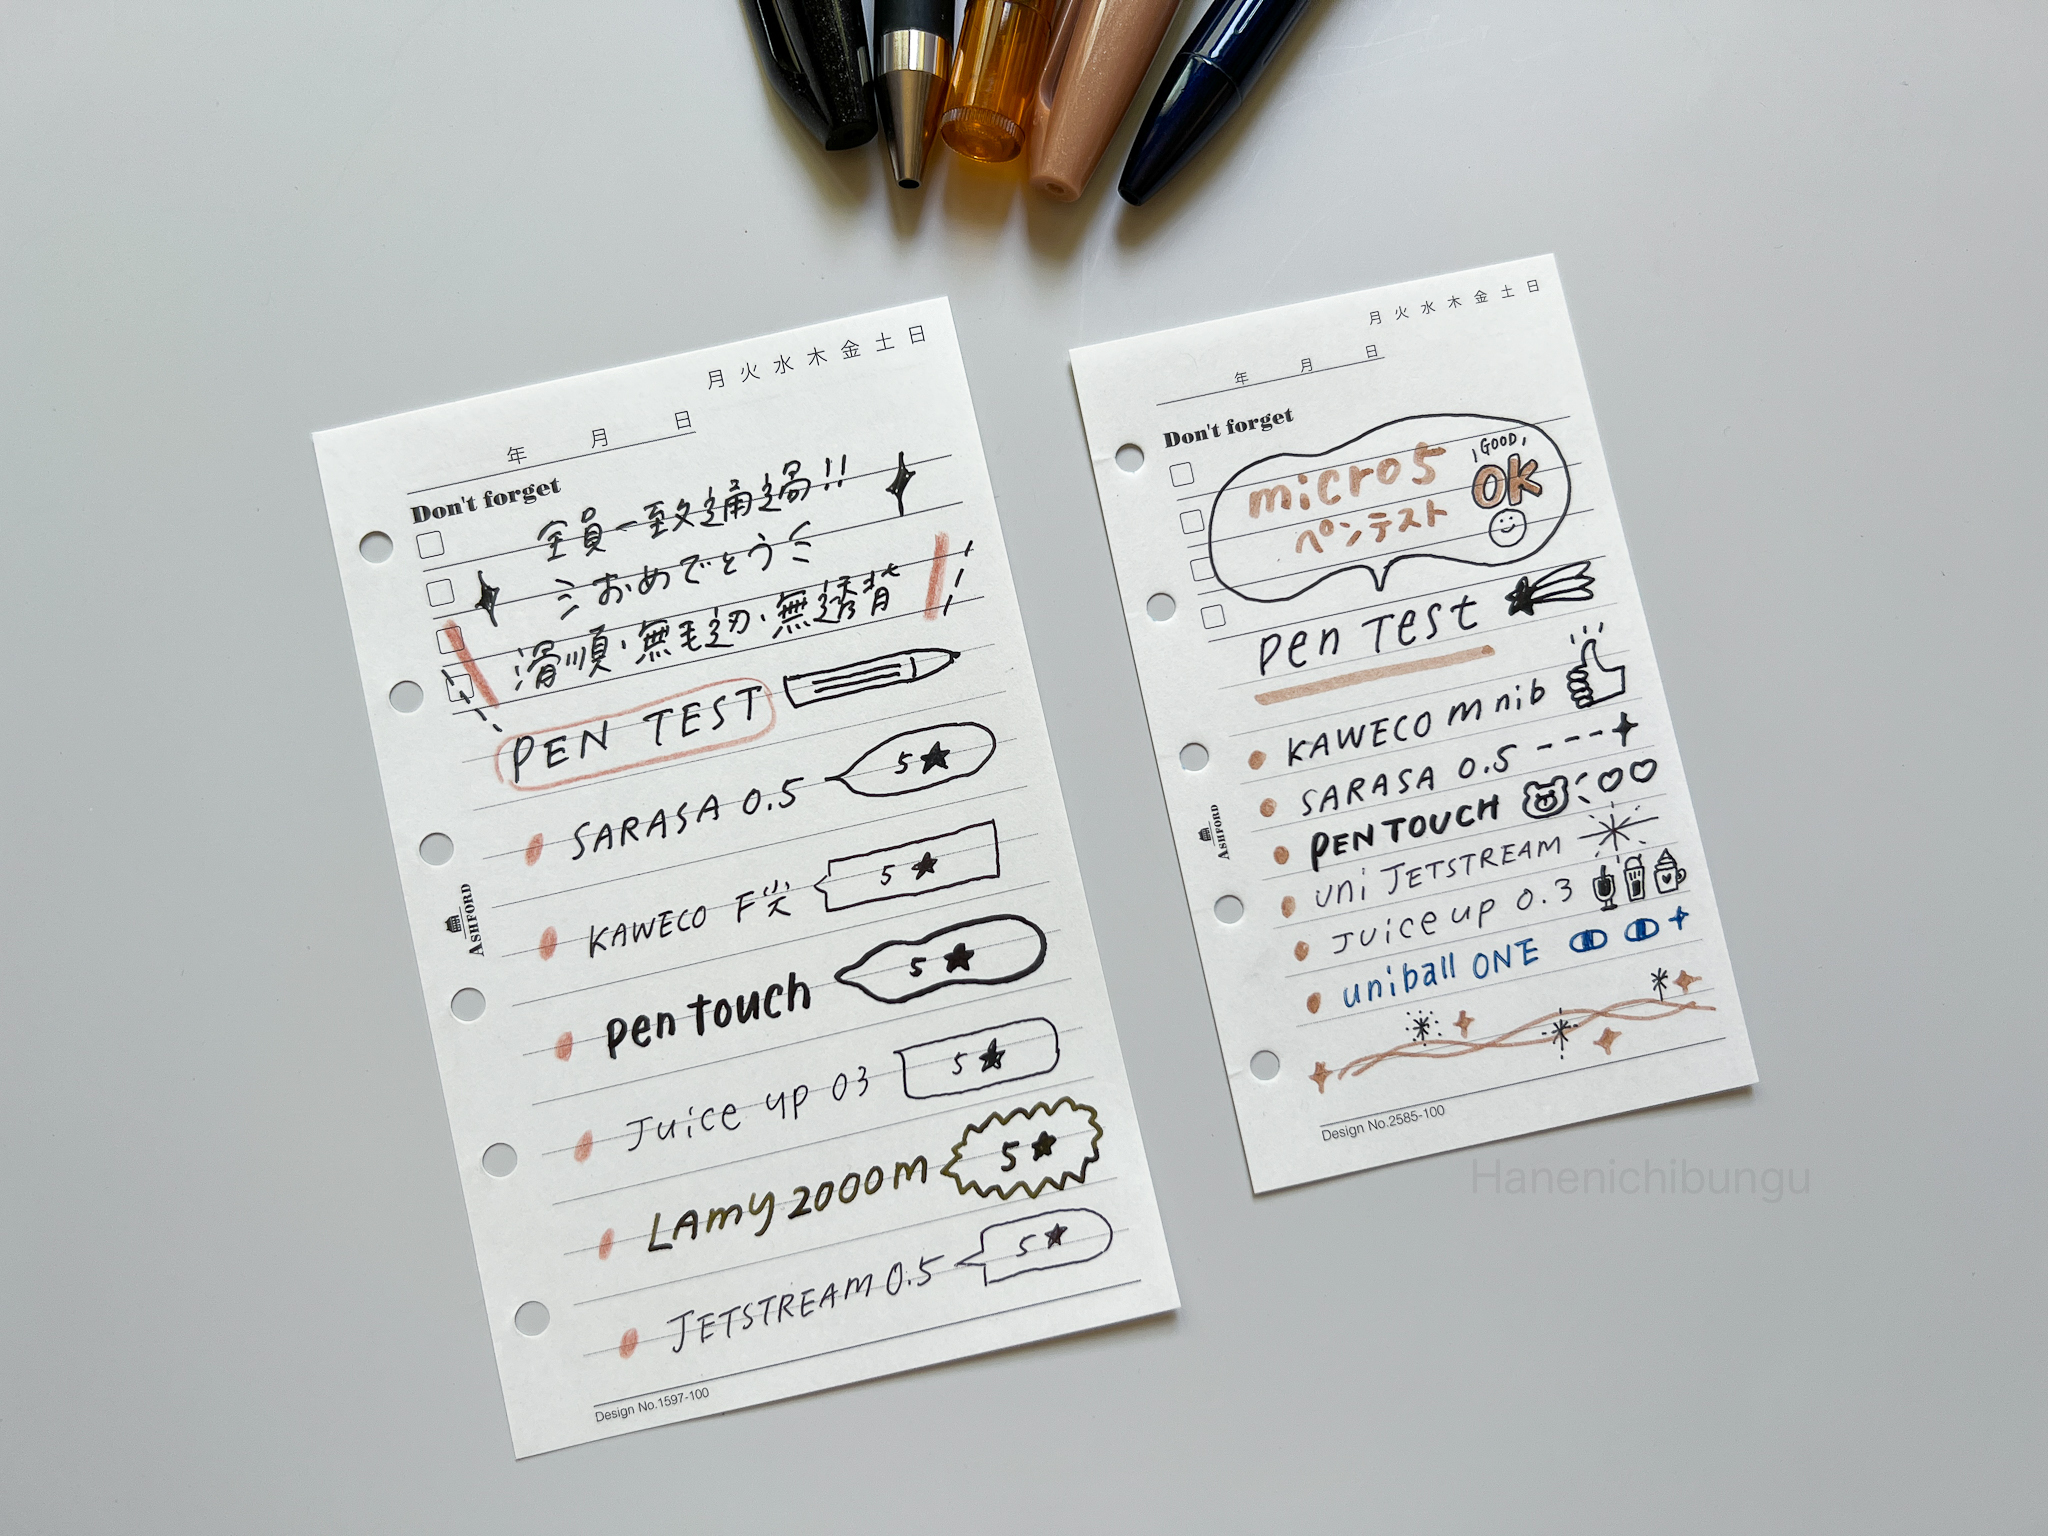 月 火 水 木 金 土 日
年 月 日
Don't forget
全員一致通過!!
おめでとう
滑順、無毛邊、無透背
PEN TEST
SARASA 0.5 5★
KAWECO F尖 5★
pen touch 5★
Juice up 03 5★
LAMY 2000 M 5★
JETSTREAM 0.5 5★
ASHFORD
Design No.1597-100
月 火 水 木 金 土 日
年 月 日
Don't forget
GOOD,
micro5 OK
ペンテスト
Pen Test
KAWECO M nib
SARASA 0.5
PEN TOUCH
uni JETSTREAM
Juice up 0.3
uniball ONE
ASHFORD
Design No.2585-100
Hanenichibungu